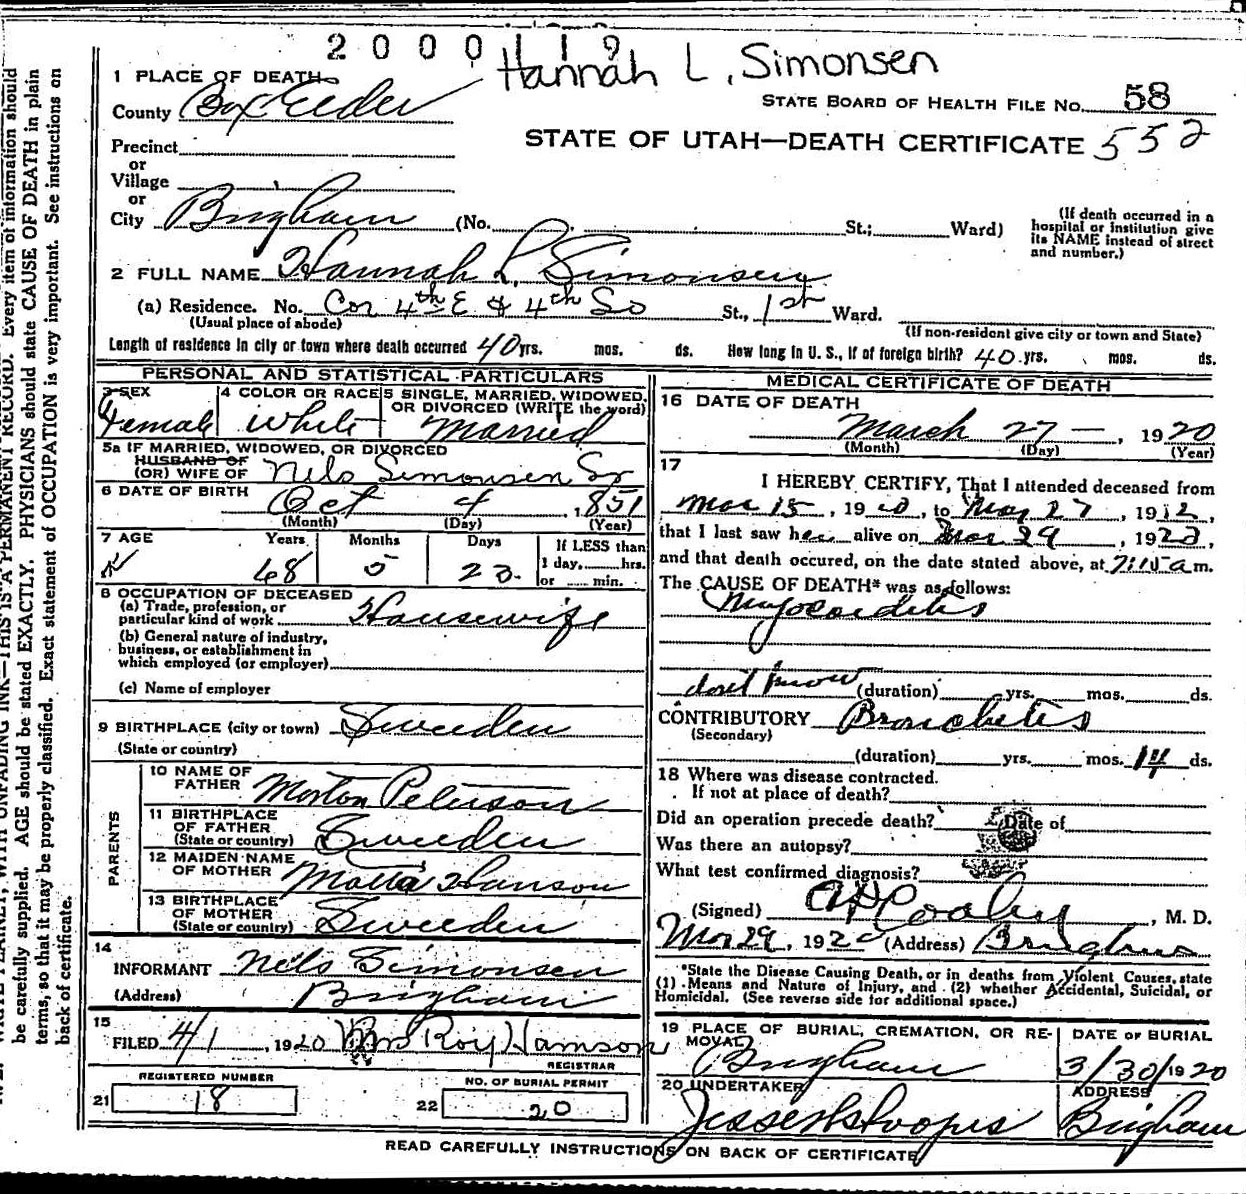 2000119
Hannah L. Simonsen
1 PLACE OF DEATH
County Box Elder
STATE BOARD OF HEALTH FILE NO. 58
STATE OF UTAH—DEATH CERTIFICATE 552
Precinct
or
Village
or
City Brigham (No. St.; Ward)
(If death occurred in a
hospital or institution give
its NAME instead of street
and number.)
2 FULL NAME Hannah L. Simonsen
(a) Residence. No. Cor 4th E & 4th So St., 1st Ward.
(Usual place of abode)
(If non-resident give city or town and State)
Length of residence in city or town where death occurred 40 yrs. mos. ds. How long in U. S., if of foreign birth? 40 yrs. mos. ds.
PERSONAL AND STATISTICAL PARTICULARS
3 SEX
Female
4 COLOR OR RACE
White
5 SINGLE, MARRIED, WIDOWED,
OR DIVORCED (WRITE the word)
Married
5a IF MARRIED, WIDOWED, OR DIVORCED
HUSBAND OF
(OR) WIFE OF Nels Simonsen Sr
6 DATE OF BIRTH Oct 4, 1851
(Month) (Day) (Year)
7 AGE Years Months Days
68 5 23
If LESS than
1 day, hrs.
or min.
8 OCCUPATION OF DECEASED
(a) Trade, profession, or
particular kind of work Housewife
(b) General nature of industry,
business, or establishment in
which employed (or employer)
(c) Name of employer
9 BIRTHPLACE (city or town) Sweeden
(State or country)
PARENTS
10 NAME OF
FATHER Morton Peterson
11 BIRTHPLACE
OF FATHER
(State or country) Sweeden
12 MAIDEN NAME
OF MOTHER Hanson
13 BIRTHPLACE
OF MOTHER
(State or country) Sweeden
14
INFORMANT Nels Simonsen
(Address) Brigham
15
FILED 4/1, 1920 Mrs Roy Hamson
REGISTRAR
REGISTERED NUMBER
21 18
NO. OF BURIAL PERMIT
22 20
MEDICAL CERTIFICATE OF DEATH
16 DATE OF DEATH
March 27 —, 1920
(Month) (Day) (Year)
17
I HEREBY CERTIFY, That I attended deceased from
Mar 15, 1920, to Mar 27, 1912,
that I last saw her alive on Mar 29, 1920,
and that death occured, on the date stated above, at 7:15 a m.
The CAUSE OF DEATH* was as follows:
Myocorditis
dont know (duration) yrs. mos. ds.
CONTRIBUTORY Bronchetis
(Secondary)
(duration) yrs. mos. 14 ds.
18 Where was disease contracted.
If not at place of death?
Did an operation precede death? Date of
Was there an autopsy?
What test confirmed diagnosis?
(Signed) , M. D.
Mar 29, 1920 (Address) Brigham
*State the Disease Causing Death, or in deaths from Violent Causes, state
(1) Means and Nature of Injury, and (2) whether Accidental, Suicidal, or
Homicidal. (See reverse side for additional space.)
19 PLACE OF BURIAL, CREMATION, OR RE-
MOVAL Brigham
DATE OF BURIAL
3/30/1920
20 UNDERTAKER
ADDRESS
Brigham
READ CAREFULLY INSTRUCTIONS ON BACK OF CERTIFICATE
be carefully supplied. AGE should be stated EXACTLY. PHYSICIANS should state CAUSE OF DEATH in plain
terms, so that it may be properly classified. Exact statement of OCCUPATION is very important. See instructions on
back of certificate.